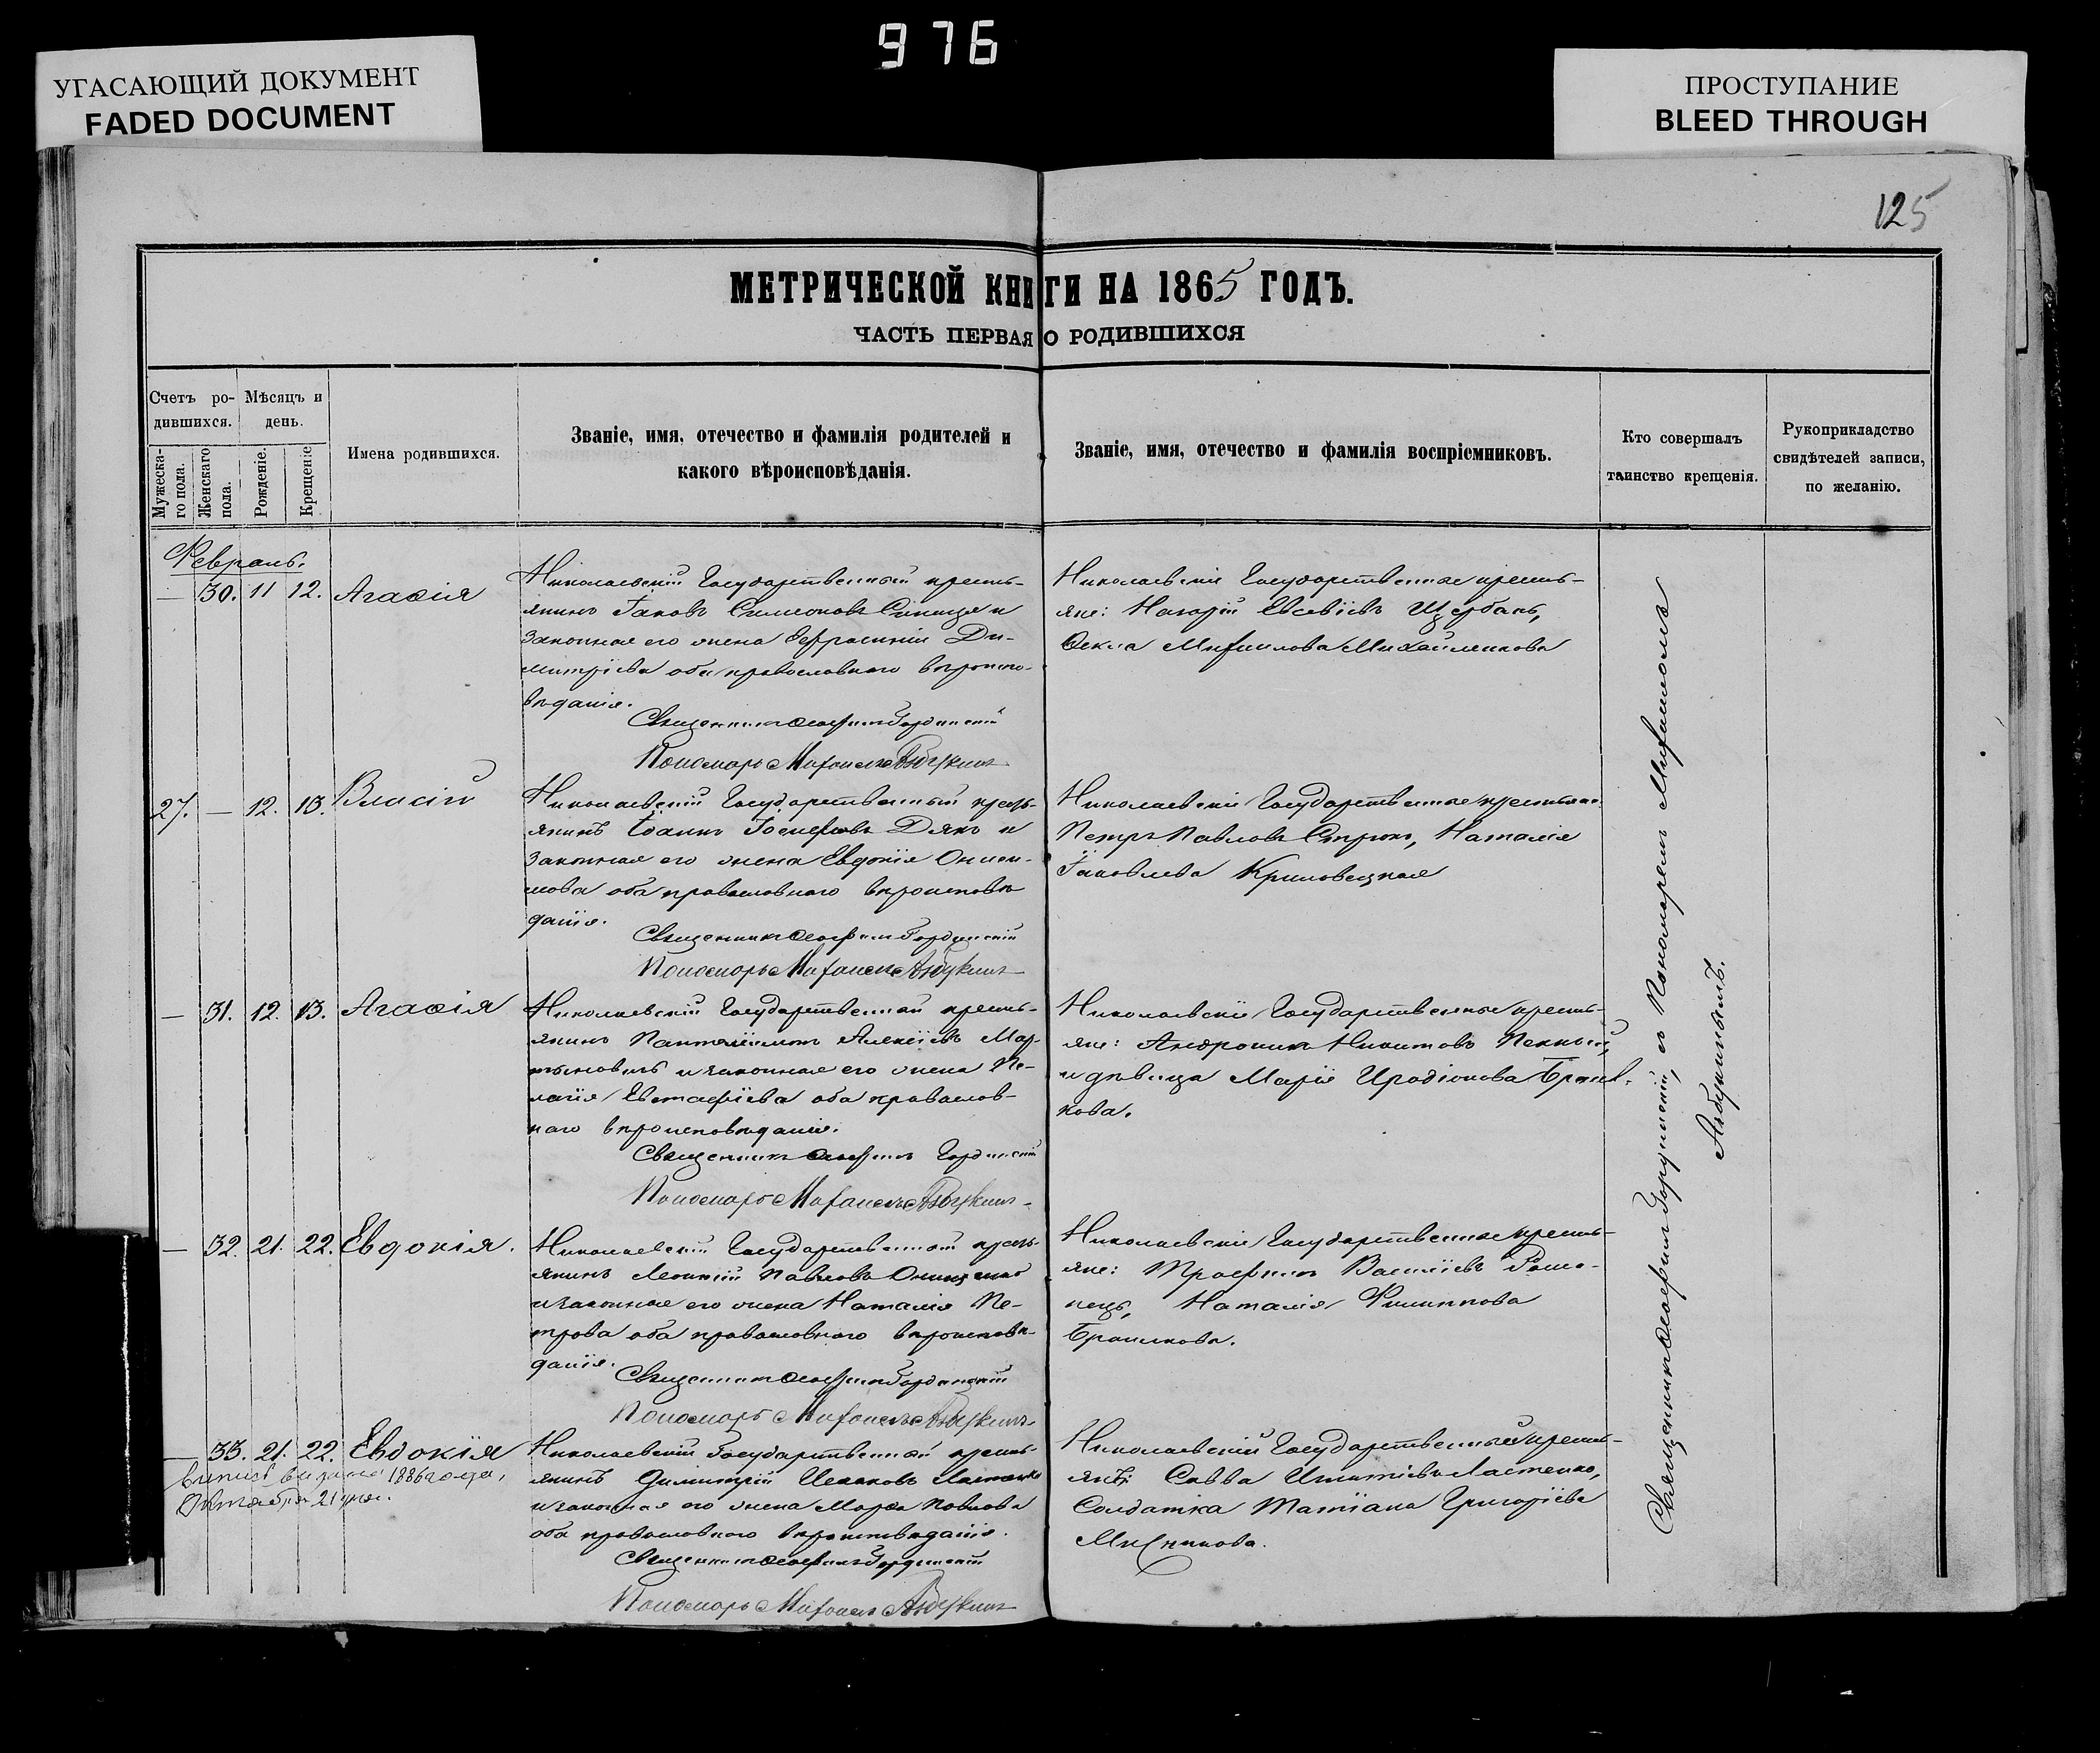 976
УГАСАЮЩИЙ ДОКУМЕНТ
FADED DOCUMENT
ПРОСТУПАНИЕ
BLEED THROUGH
125
МЕТРИЧЕСКОЙ КНИГИ НА 1865 ГОДЪ.
ЧАСТЬ ПЕРВАЯ О РОДИВШИХСЯ
Счетъ ро-
дившихся.
Мужеска-
го пола.
Женскаго
пола.
Мѣсяцъ и
день.
Рожденіе.
Крещеніе
Имена родившихся.
Званіе, имя, отечество и фамилія родителей и
какого вѣроисповѣданія.
Званіе, имя, отечество и фамилія воспріемниковъ.
Кто совершалъ
таинство крещенія.
Рукоприкладство
свидѣтелей записи,
по желанію.
Февраль.
— 30. 11 12. Агаѳія
Николаевскій Государственный кресть-
янинъ Іаковъ Симеоновъ Синица и
законная его жена Ефросинія Ди-
митріева оба православнаго вѣроиспо-
вѣданія.
Священникъ Іосифъ Гординскій
Пономарь Мифаилъ Азбукинъ
Николаевскіе Государственные кресть-
яне: Назарій Евсевіевъ Щербань,
Ѳекла Мифаилова Михайленкова
27. — 12. 13. Власій
Николаевскій Государственный кресть-
янинъ Іоаннъ Іосифовъ Дякъ и
законная его жена Евдокія Онисн-
мова оба православнаго вѣроисповѣ
данія.
Священникъ Іосифъ Гординскій
Пономарь Мифаилъ Азбукинъ
Николаевскіе Государственные крестьяне:
Петръ Павловъ Стрюкъ, Наталія
Іаковлева Криловецкая
— 31. 12. 13. Агаѳія
Николаевскій Государственный кресть-
янинъ Пантелеимонъ Алексіевъ Мар-
тыновичъ и законная его жена Пе-
лагія Евстафіева оба православ-
наго вѣроисповѣданія.
Священникъ Іосифъ Гординскій
Пономарь Мифаилъ Азбукинъ
Николаевскіе Государственные кресть-
яне: Андроникъ Никитовъ Пекный,
и дѣвица Марія Иродіонова
кова.
— 32. 21. 22. Евдокія.
Николаевскій Государственный кресть-
янинъ Леонтій Павловъ Онищенко
и законная его жена Наталія Пе-
трова оба православнаго вѣроисповѣ-
данія.
Священникъ Іосифъ Гординскій
Пономарь Мифаилъ Азбукинъ
Николаевскіе Государственные кресть-
яне: Трофимъ Василіевъ Рома-
нецъ, Наталія Филиппова
Браилкова.
— 33. 21. 22. Евдокія
выпись выдана 1886 года,
Октября 21 дня.
Николаевскій Государственный кресть-
янинъ Димитрій Исааковъ Ластенко
и законная его жена Марѳа Павлова
оба православнаго вѣроисповѣданія.
Священникъ Іосифъ Гординскій
Пономарь Мифаилъ Азбукинъ
Николаевскій Государственный кресть-
янъ: Савва Игнатіевъ Ластенко,
Солдатка Татіана Григоріева
Мисникова.
Священникъ Іосифъ Гординскій, съ Пономаремъ Мифаиломъ
Азбукинымъ.